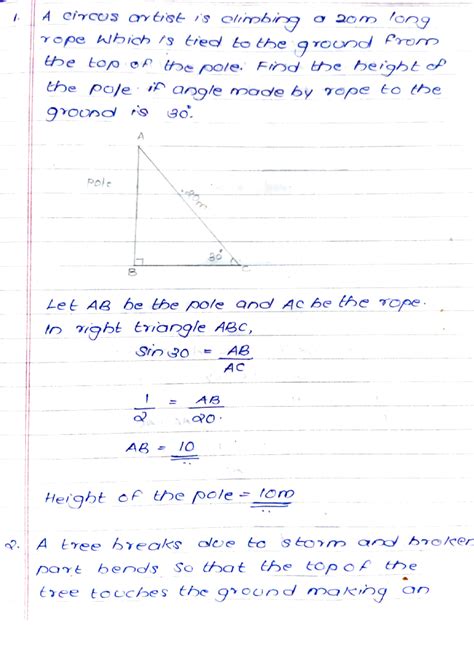 1. A circus artist is climbing a 20m long
rope which is tied to the ground from
the top of the pole. Find the height of
the pole if angle made by rope to the
ground is 30°.
A
pole
20m
30°
B
C
Let AB be the pole and AC be the rope.
In right triangle ABC,
Sin 30 = AB
AC
1 = AB
2 20.
AB = 10
Height of the pole = 10m
2. A tree breaks due to storm and broken
part bends so that the top of the
tree touches the ground making an